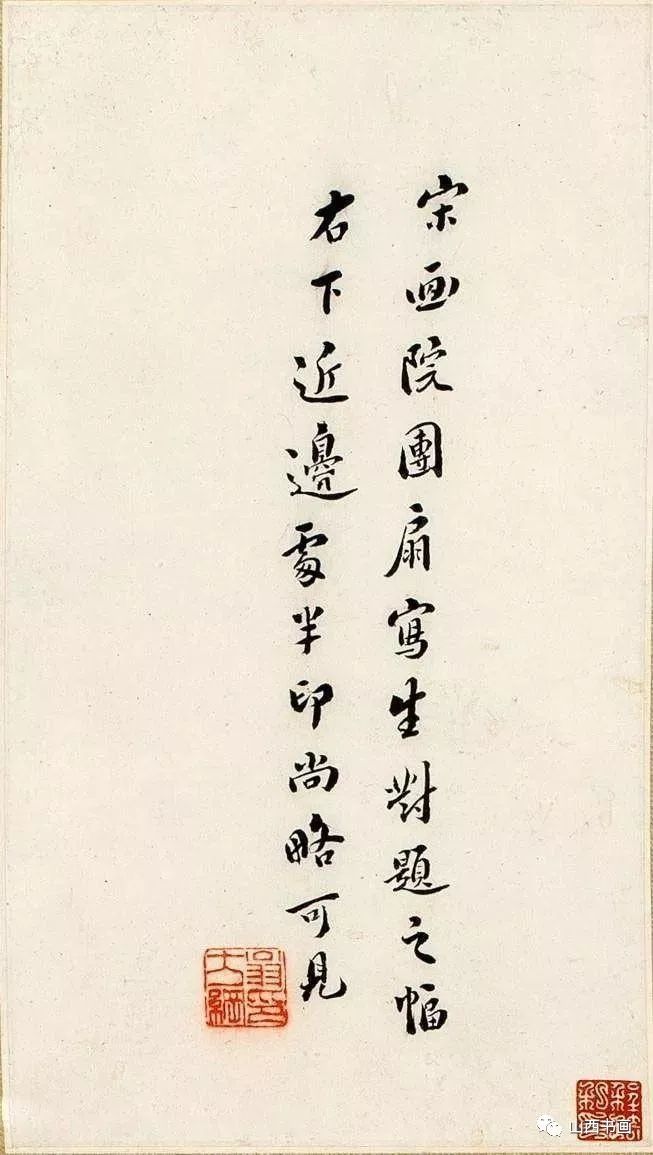 宋画院團扇寫生對題之幅
右下近邊處半印尚略可見
翁印大綱
山西书画